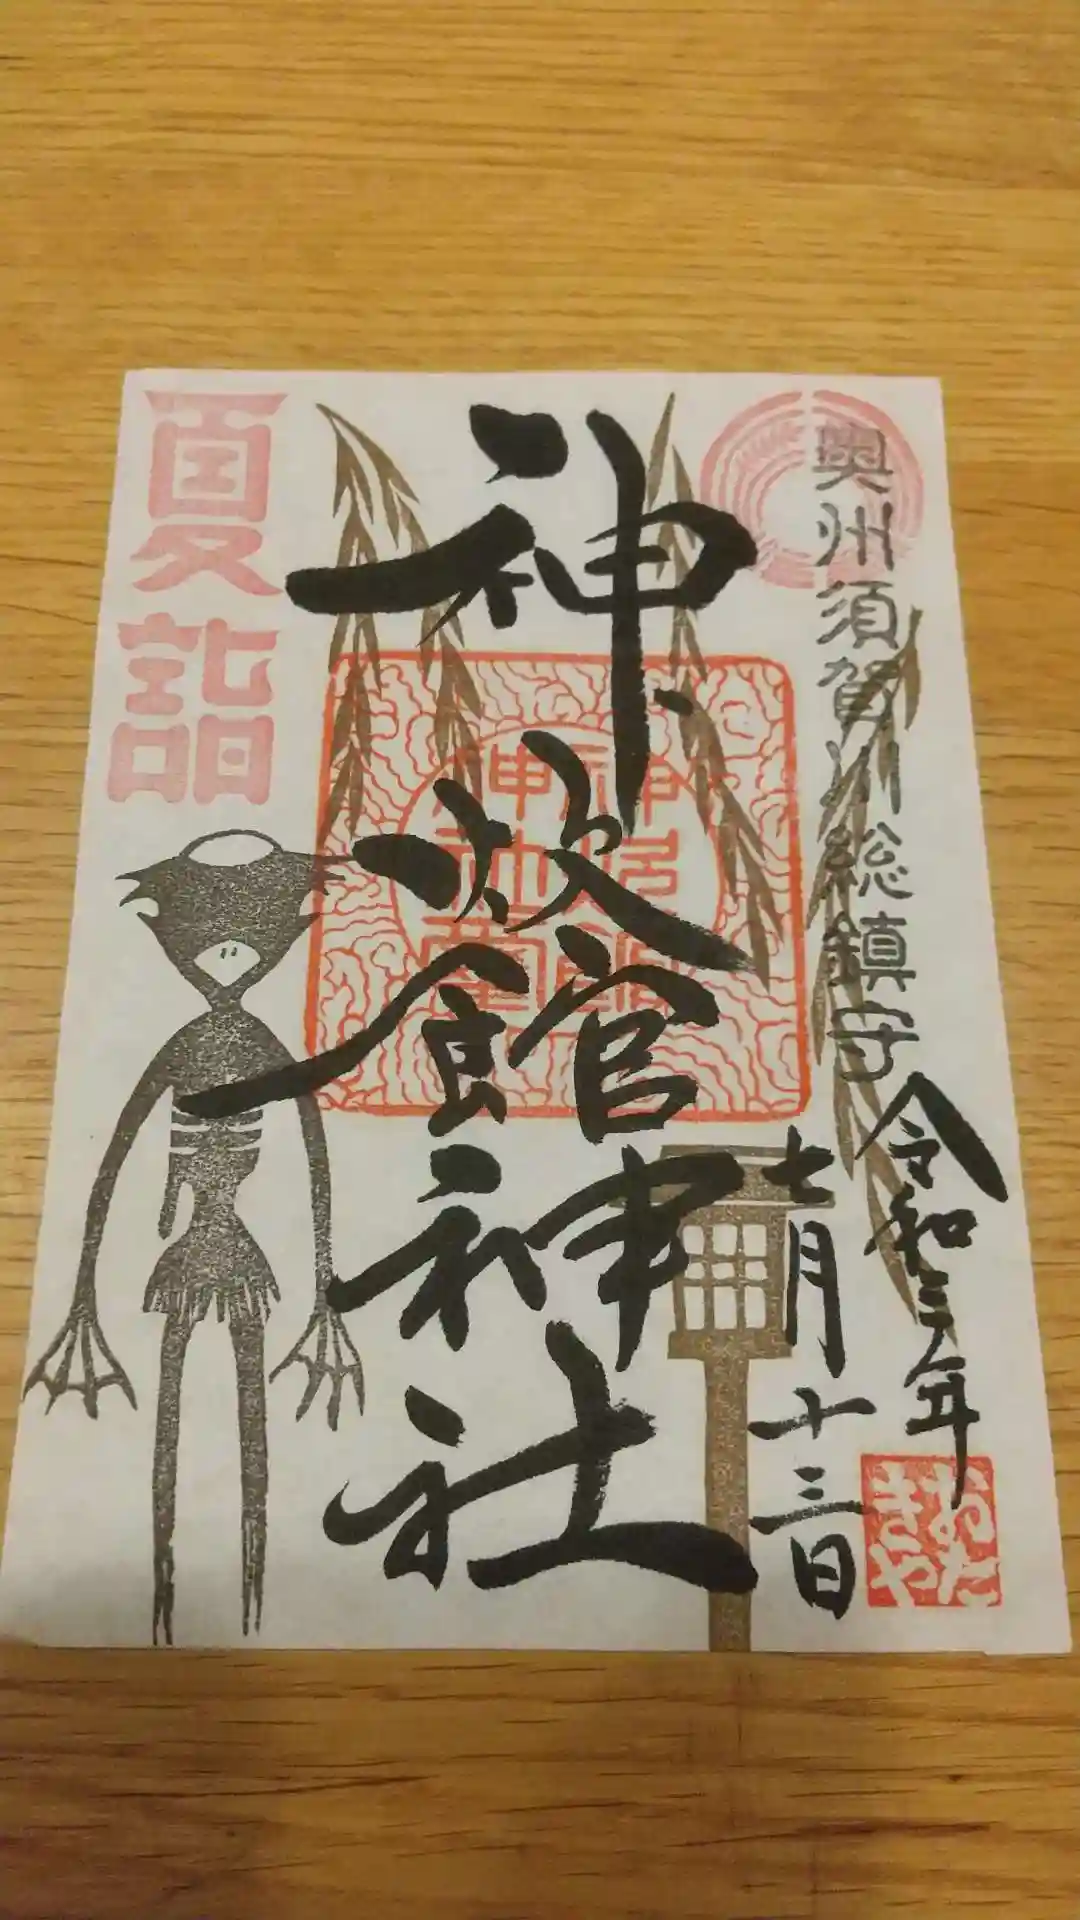 奥州須賀川総鎮守
令和三年
七月十三日
神炊館神社
夏詣
おたきや